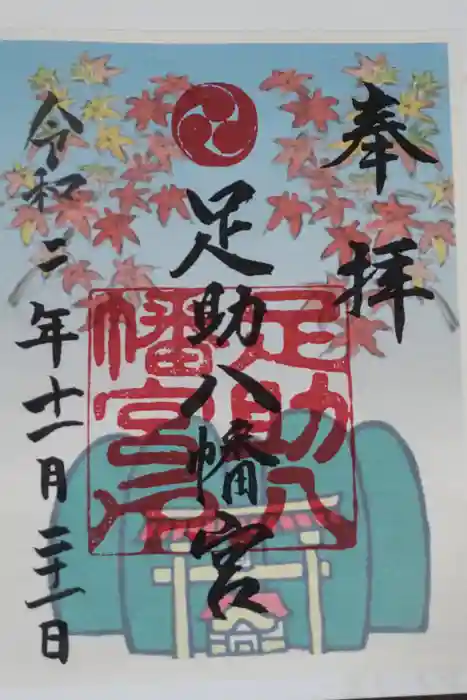 奉拝
足助八幡宮
令和二年十一月二十一日
足助八
幡宮印